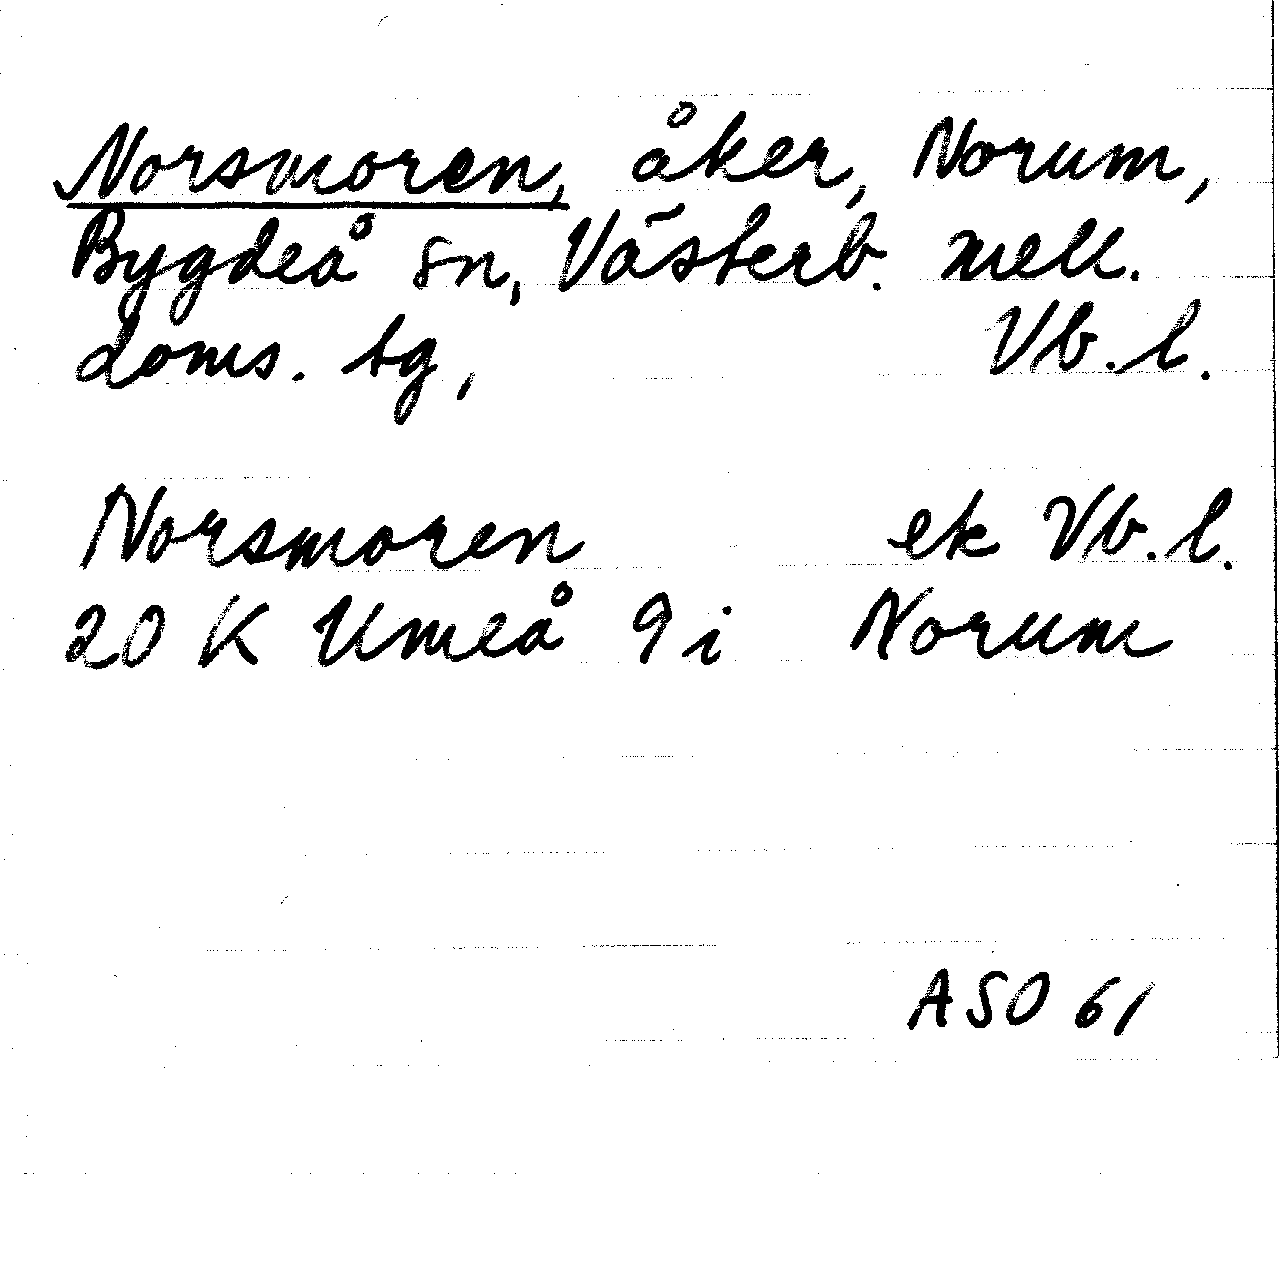 Norsmoren, åker, Norum,
Bygdeå sn, Västerb. mell.
doms. tg, Vb. l.
Norsmoren ek Vb. l.
20 K Umeå 9 i Norum
ASO 61